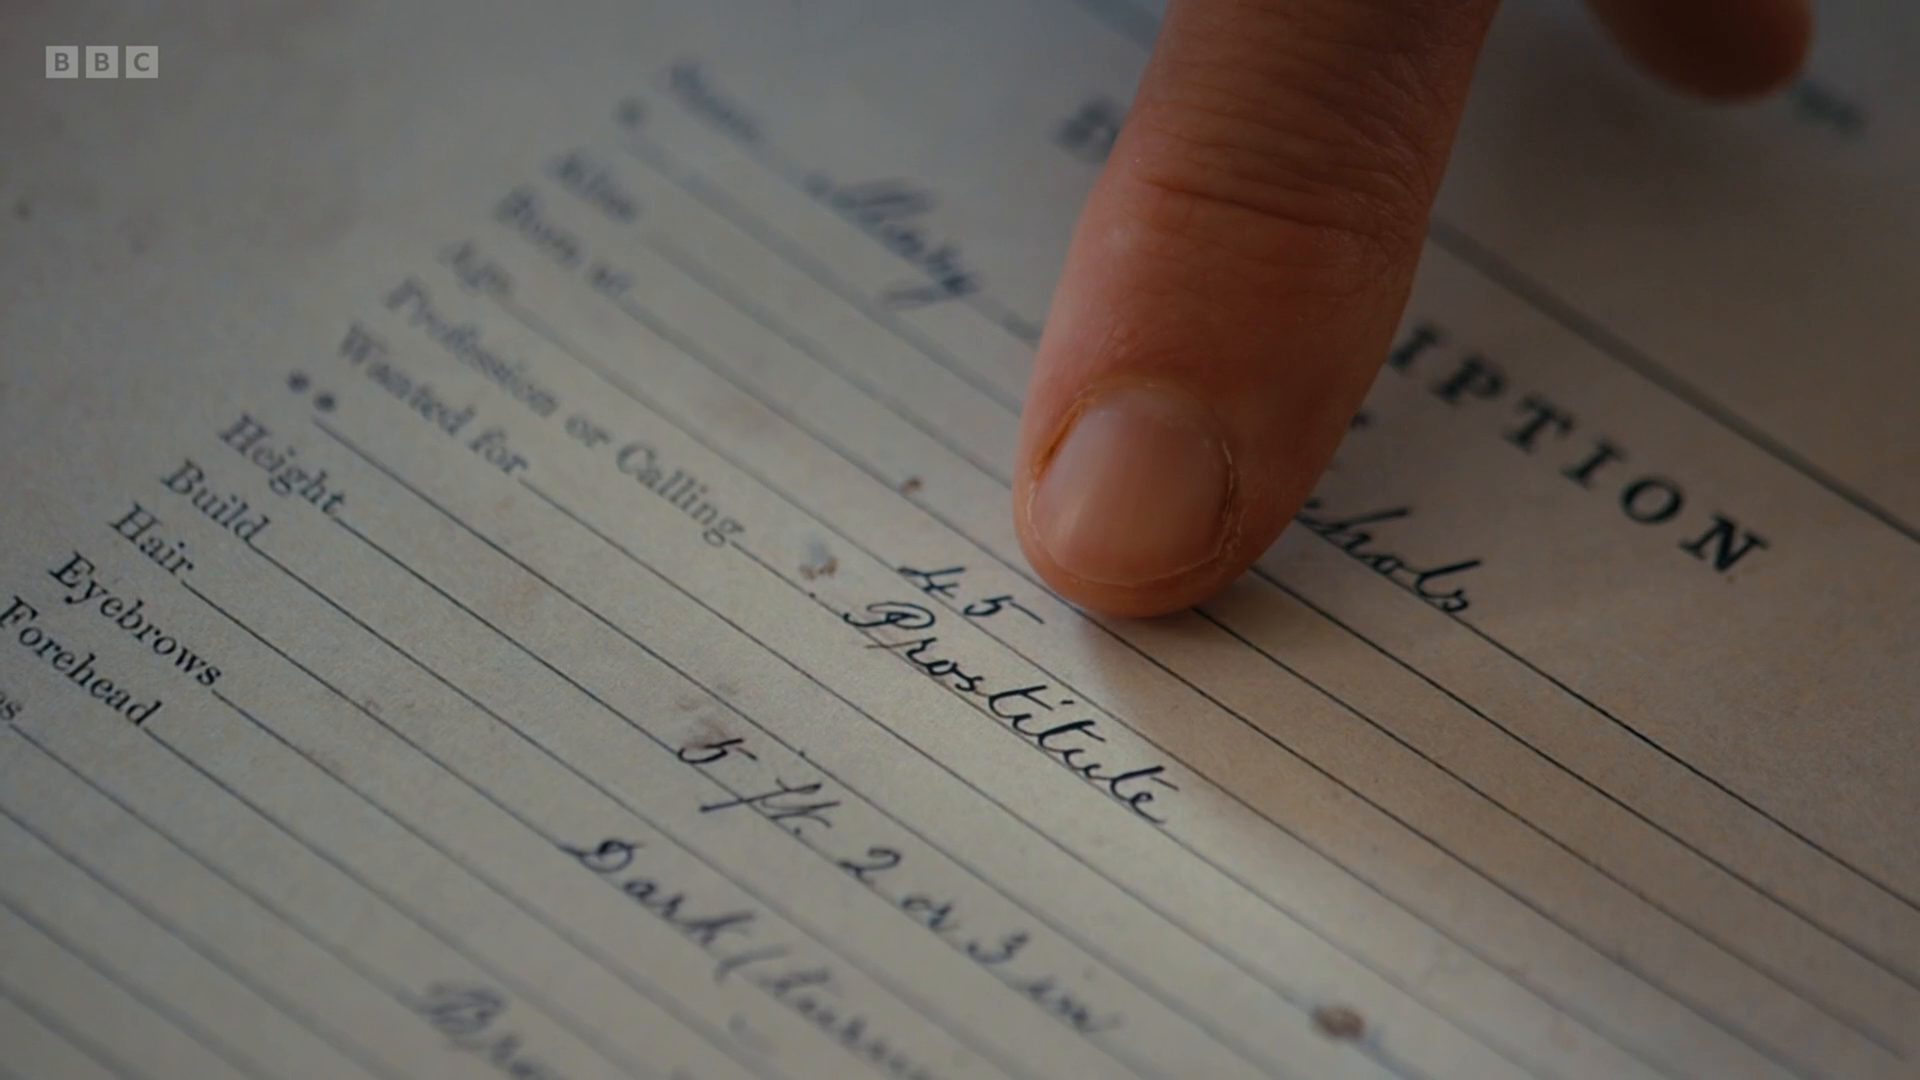 BBC
IPTION
Name Mary
chols
Alias
Born at
Age 45
Profession or Calling Prostitute
Wanted for
Height 5 ft. 2 or 3 in
Build
Hair Dark (
Eyebrows
Forehead